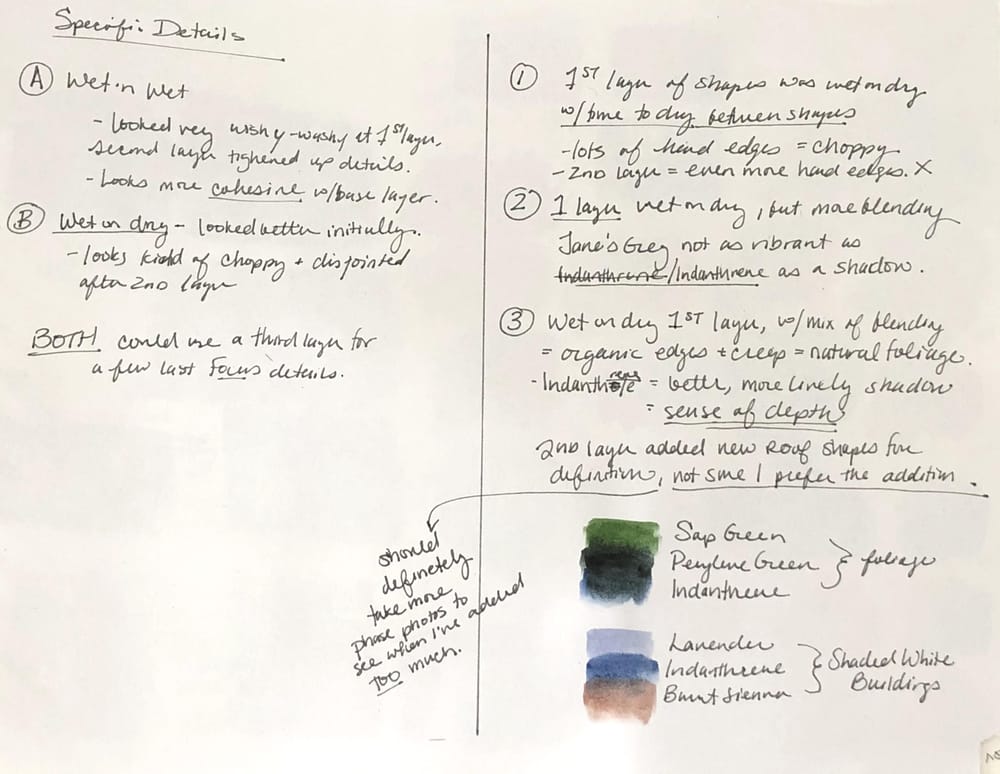 Specific Details
Ⓐ Wet n Wet
- looked very wishy-washy at 1st layer,
second layer tightened up details.
- Looks more cohesive w/base layer.
Ⓑ Wet on dry - looked better initially.
- looks kind of choppy + disjointed
after 2nd layer
BOTH could use a third layer for
a few last FOCUS details.
① 1ST layer of shapes was wet on dry
w/time to dry between shapes
- lots of hard edges = choppy
- 2nd layer = even more hard edges. X
② 1 layer wet on dry, but more blending
Jane's Grey not as vibrant as
Indanthrene/Indanthrene as a shadow.
③ Wet on dry 1ST layer, w/mix of blending
= organic edges + creep = natural foliage.
- Indanthrene = better, more lively shadow
= sense of depth
2nd layer added new ROOF shapes for
definition, not sure I prefer the addition.
should
definetely
take more
phase photos to
see when I've added
TOO much.
Sap Green
Perylene Green } foliage
Indanthrene
Lavender
Indanthrene } Shaded White
Burnt Sienna Buildings